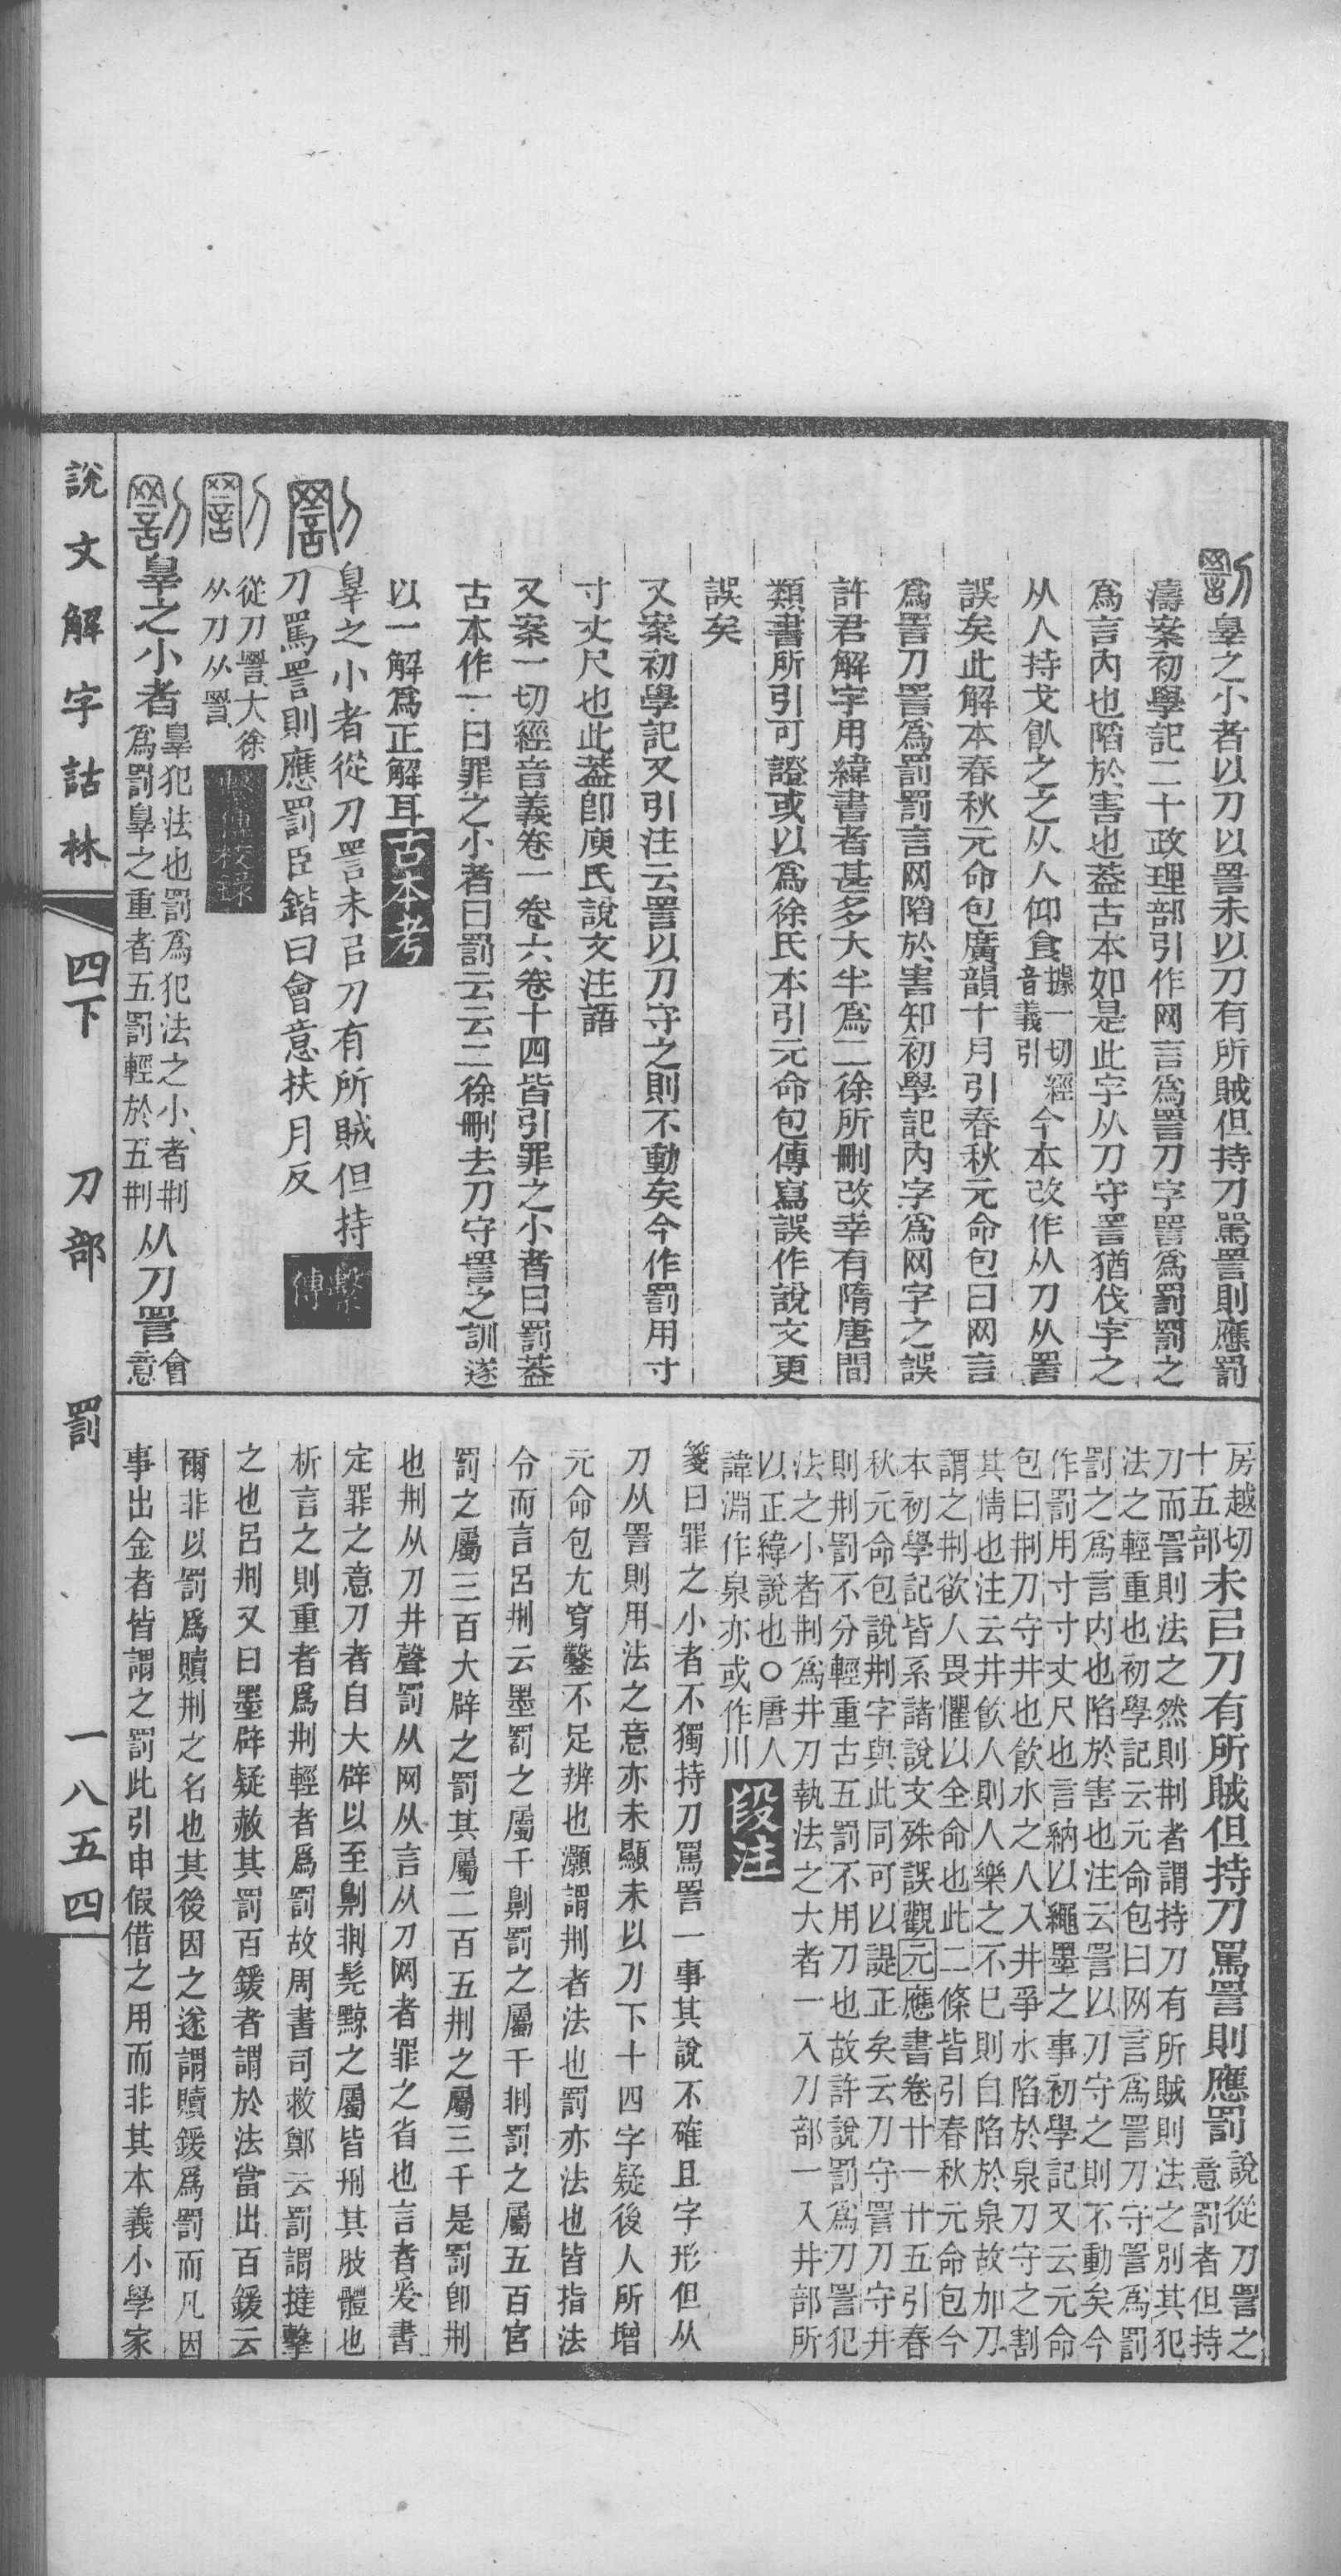 罰辠之小者以刀以詈未以刀有所賊但持刀罵詈則應罰
濤案初學記二十政理部引作网言爲詈刀字詈爲罰罰之
爲言內也陷於害也葢古本如是此字从刀守詈猶伐字之
从人持戈飤之之从人仰食據一切經音義引今本改作从刀从詈
誤矣此解本春秋元命包廣韻十月引春秋元命包曰网言
爲詈刀詈爲罰罰言网陷於害知初學記內字爲网字之誤
許君解字用緯書者甚多大半爲二徐所刪改幸有隋唐間
類書所引可證或以爲徐氏本引元命包傳寫誤作說文更
誤矣
又案初學記又引注云詈以刀守之則不動矣今作罰用寸
寸丈尺也此葢卽庾氏說文注語
又案一切經音義卷一卷六卷十四皆引罪之小者曰罰葢
古本作一曰罪之小者曰罰云云二徐刪去刀守詈之訓遂
以一解爲正解耳古本考
罰辠之小者從刀詈未㠯刀有所賊但持
刀罵詈則應罰臣鍇曰會意扶月反繫傳
罰從刀詈大徐
从刀从詈繫傳校錄
罰辠之小者辠犯法也罰爲犯法之小者㓝
爲罰辠之重者五罰輕於五㓝从刀詈會意
房越切
十五部未㠯刀有所賊但持刀罵詈則應罰說從刀詈之
意罰者但持
刀而詈則法之然則㓝者謂持刀有所賊則法之別其犯
法之輕重也初學記云元命包曰网言爲詈刀守詈爲罰
罰之爲言內也陷於害也注云詈以刀守之則不動矣今
作罰用寸寸丈尺也言納以繩墨之事初學記又云元命
包曰㓝刀守井也飮水之人入井爭水陷於泉刀守之割
其情也注云井飮人則人樂之不已則自陷於泉故加刀
謂之㓝欲人畏懼以全命也此二條皆引春秋元命包今
本初學記皆系諸說文殊誤觀元應書卷廿一廿五引春
秋元命包說㓝字與此同可以諟正矣云刀守詈刀守井
則㓝罰不分輕重古五罰不用刀也故許說罰爲刀詈犯
法之小者㓝爲井刀執法之大者一入刀部一入井部所
以正緯說也○唐人
諱淵作泉亦或作川段注
箋曰罪之小者不獨持刀罵詈一事其說不確且字形但从
刀从詈則用法之意亦未顯未以刀下十四字疑後人所增
元命包尤穿鑿不足辨也灝謂㓝者法也罰亦法也皆指法
令而言呂㓝云墨罰之屬千劓罰之屬千剕罰之屬五百宮
罰之屬三百大辟之罰其屬二百五㓝之屬三千是罰卽㓝
也㓝从刀井聲罰从网从言从刀网者罪之省也言者爰書
定罪之意刀者自大辟以至劓剕髡黥之屬皆刑其肢體也
析言之則重者爲㓝輕者爲罰故周書司救鄭云罰謂撻擊
之也呂㓝又曰墨辟疑赦其罰百鍰者謂於法當出百鍰云
爾非以罰爲贖㓝之名也其後因之遂謂贖鍰爲罰而凡因
事出金者皆謂之罰此引申假借之用而非其本義小學家
說文解字詁林 四下 刀部 罰 一八五四